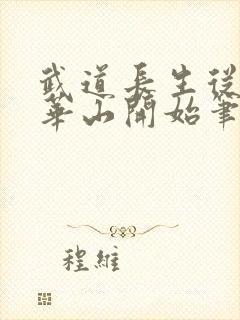 武道長生從
華山開始筆
程維